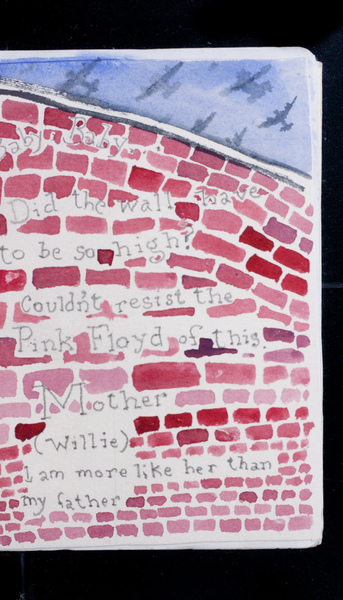 Baby, Baby...
Did the wall have
to be so high?
Couldn't resist the
Pink Floyd of this.
Mother
(Willie).
I am more like her than
my father